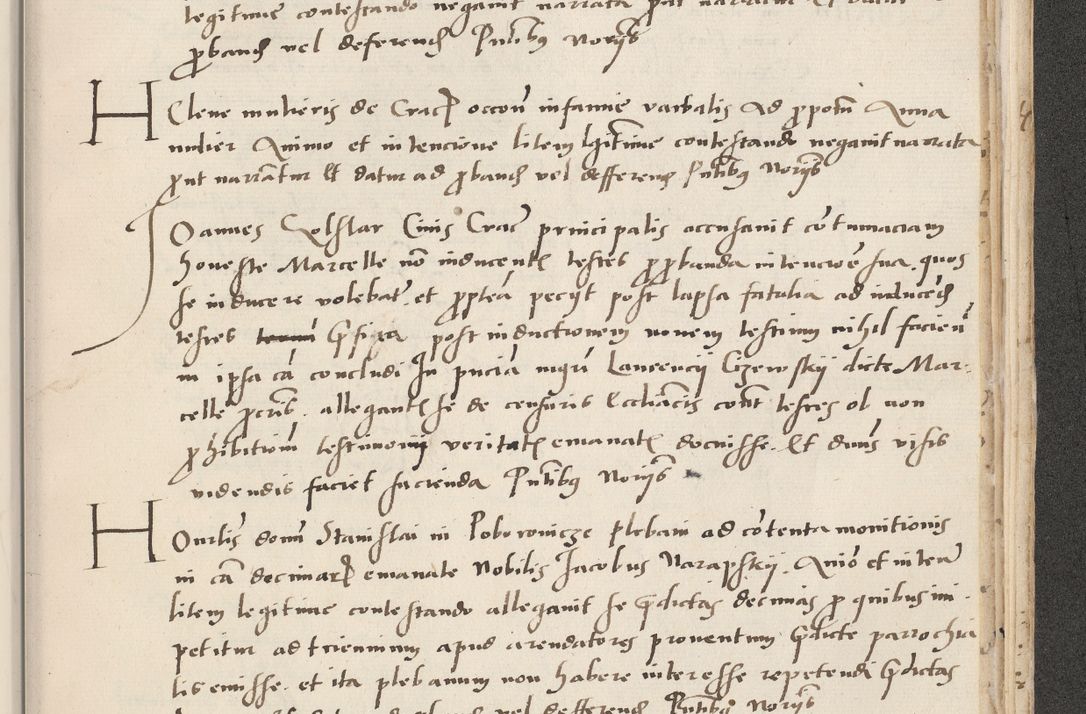 legitime contestando negavit narrata put narrantur Et datur
pband vel deferend Pntibg Norijs
Helene mulieris de Crac occon infamie varbalis Ad ppotm Anna
mulier Animo et intencione litem lgitime contestando negavit narrata
put narrantur Et datur ad pband vel defferend pntibg Norijs
Joannes Golstar Civis Crac principalis accusavit cotumaciam
honeste Marcelle no inducent testes p pbanda intencioe sua. quos
se inducere volebat et pptea pecijt post lapsa fatalia ad inducend
testes Gsigna post inductionem novem testium nihil facien
in ipsa ca concludi In pncia mgri Laurencij Czewskij dicte Mar-
celle pcris. allegant se de censuris Eccliacis cont testes ob non
phibitiom testimonij veritatis emanat docuisse. Et dnus visis
videndis faciet facienda Pntibg Norijs
Honrlis domi Stanislai in Poborowicze plebani ad cotenta monitionis
in ca decimar emanate Nobilis Jacobus Narapskij. Anio et inten
litem legitime contestando allegavit se pdictas decimas p quibus im-
petitur ad triennium apud arendatores proventum pdicte parrochia
lis emisse. et ita plebanum non habere interesse repetendi pdictas
vel defferend Pntibg Norijs